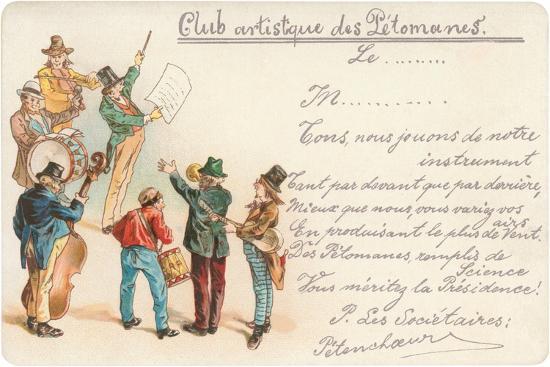 Club artistque des Pétomanes.
Le .........
M............
Tous, nous jouons de notre
instrument
Tant par devant que par derrière,
Mieux que nous vous variez vos
airs
En produisant le plus de Vent.
Des Pétomanes, remplis de
Science
Vous méritez la Présidence!
P. Les Sociétaires:
Pétenchoeur